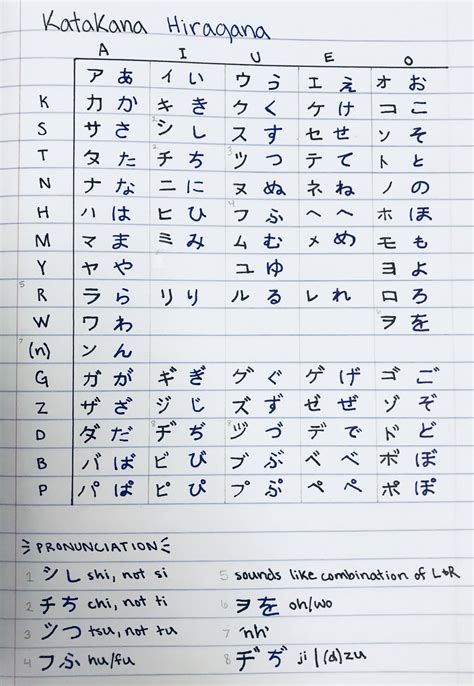 Katakana Hiragana
A I U E O
ア あ イ い ウ う エ え オ お
K カ か キ き ク く ケ け コ こ
S サ さ 1 シ し ス す セ せ ソ そ
T タ た 2 チ ち 3 ツ つ テ て ト と
N ナ な ニ に ヌ ぬ ネ ね ノ の
H ハ は ヒ ひ 4 フ ふ ヘ へ ホ ほ
M マ ま ミ み ム む メ め モ も
Y ヤ や ユ ゆ ヨ よ
5 R ラ ら リ り ル る レ れ ロ ろ
W ワ わ 6 ヲ を
7 (n) ン ん
G ガ が ギ ぎ グ ぐ ゲ げ ゴ ご
Z ザ ざ ジ じ ズ ず ゼ ぜ ゾ ぞ
D ダ だ 8 ヂ ぢ 8 ヅ づ デ で ド ど
B バ ば ビ び ブ ぶ ベ べ ボ ぼ
P パ ぱ ピ ぴ プ ぷ ペ ぺ ポ ぽ
PRONUNCIATION
1 シ し shi, not si 5 sounds like combination of L&R
2 チ ち chi, not ti 6 ヲ を oh/wo
3 ツ つ tsu, not tu 7 'nh'
4 フ ふ hu/fu 8 ヂ ぢ ji | (d)zu